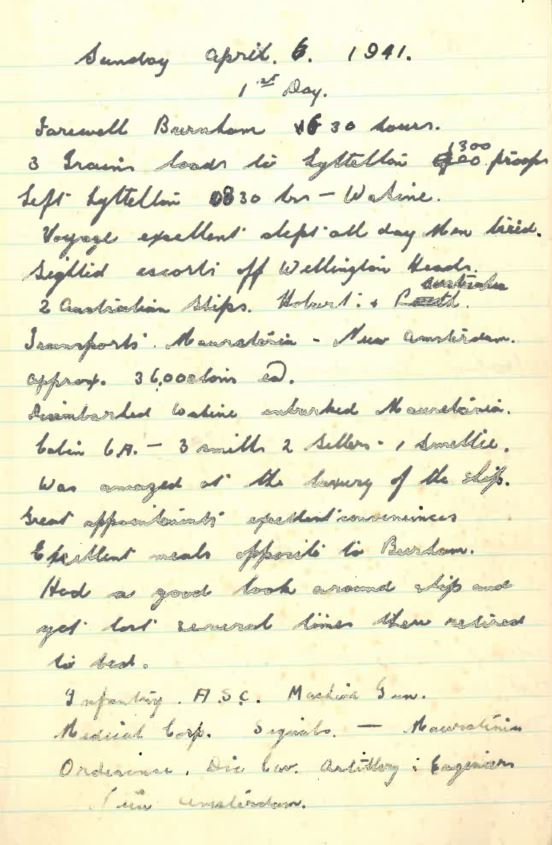 Sunday April. 6. 1941.
1st Day.
Farewell Burnham 630 hours.
3 Trains loads to Lyttelton 1300 troops
Left Lyttelton 0830 hrs - Wahine.
Voyage excellent slept all day Men tired.
Sighted escorts off Wellington Heads.
2 Australian Ships. Hobart. + Australia
Transports. Mauretania - New Amsterdam.
approx. 36,000 tons ea.
Disembarked Wahine embarked Mauretania.
Cabin 6A. - 3 smiths 2 Sellers - 1 Smellie.
Was amazed at the luxury of the ship.
Great appointments excellent conveniences
Excellent meals opposite to Burnham.
Had a good look around ship and
got lost several times then retired
to bed.
Infantry. A.S.C. Machine Gun.
Medical Corp. Signals. - Mauretania
Ordinance. Div Cav. Artillery : Engineers
New Amsterdam.